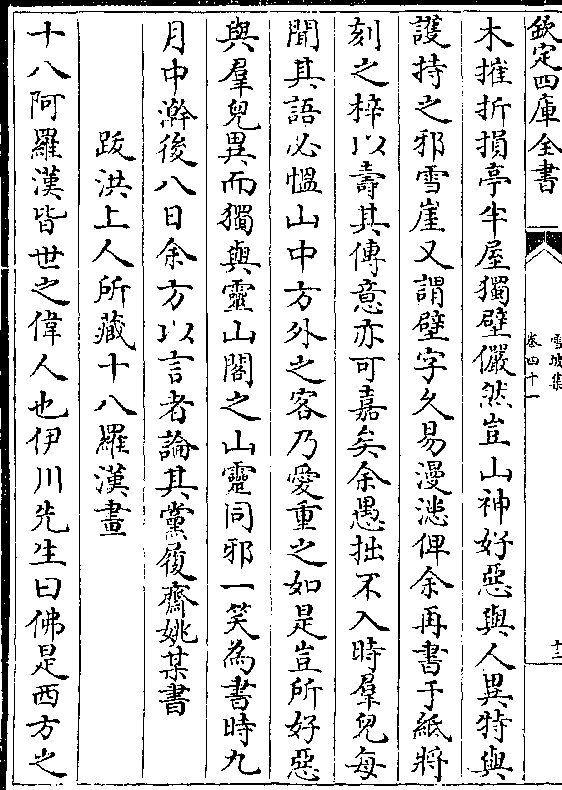 欽定四庫全書
雪坡集
卷四十一
十二
木摧折損亭半屋獨壁儼然豈山神好惡與人異特與
䕶持之邪雪崖又謂壁字久易漫漶俾余再書于紙將
刻之梓以壽其傳意亦可嘉矣余愚拙不入時羣兒每
聞其語必愠山中方外之客乃愛重之如是豈所好惡
與羣兒異而獨與靈山閣之山靈同邪一笑為書時九
月中澣後八日余方以言者論其黨履齋姚某書
跋洪上人所藏十八羅漢畫
十八阿羅漢皆世之偉人也伊川先生曰佛是西方之